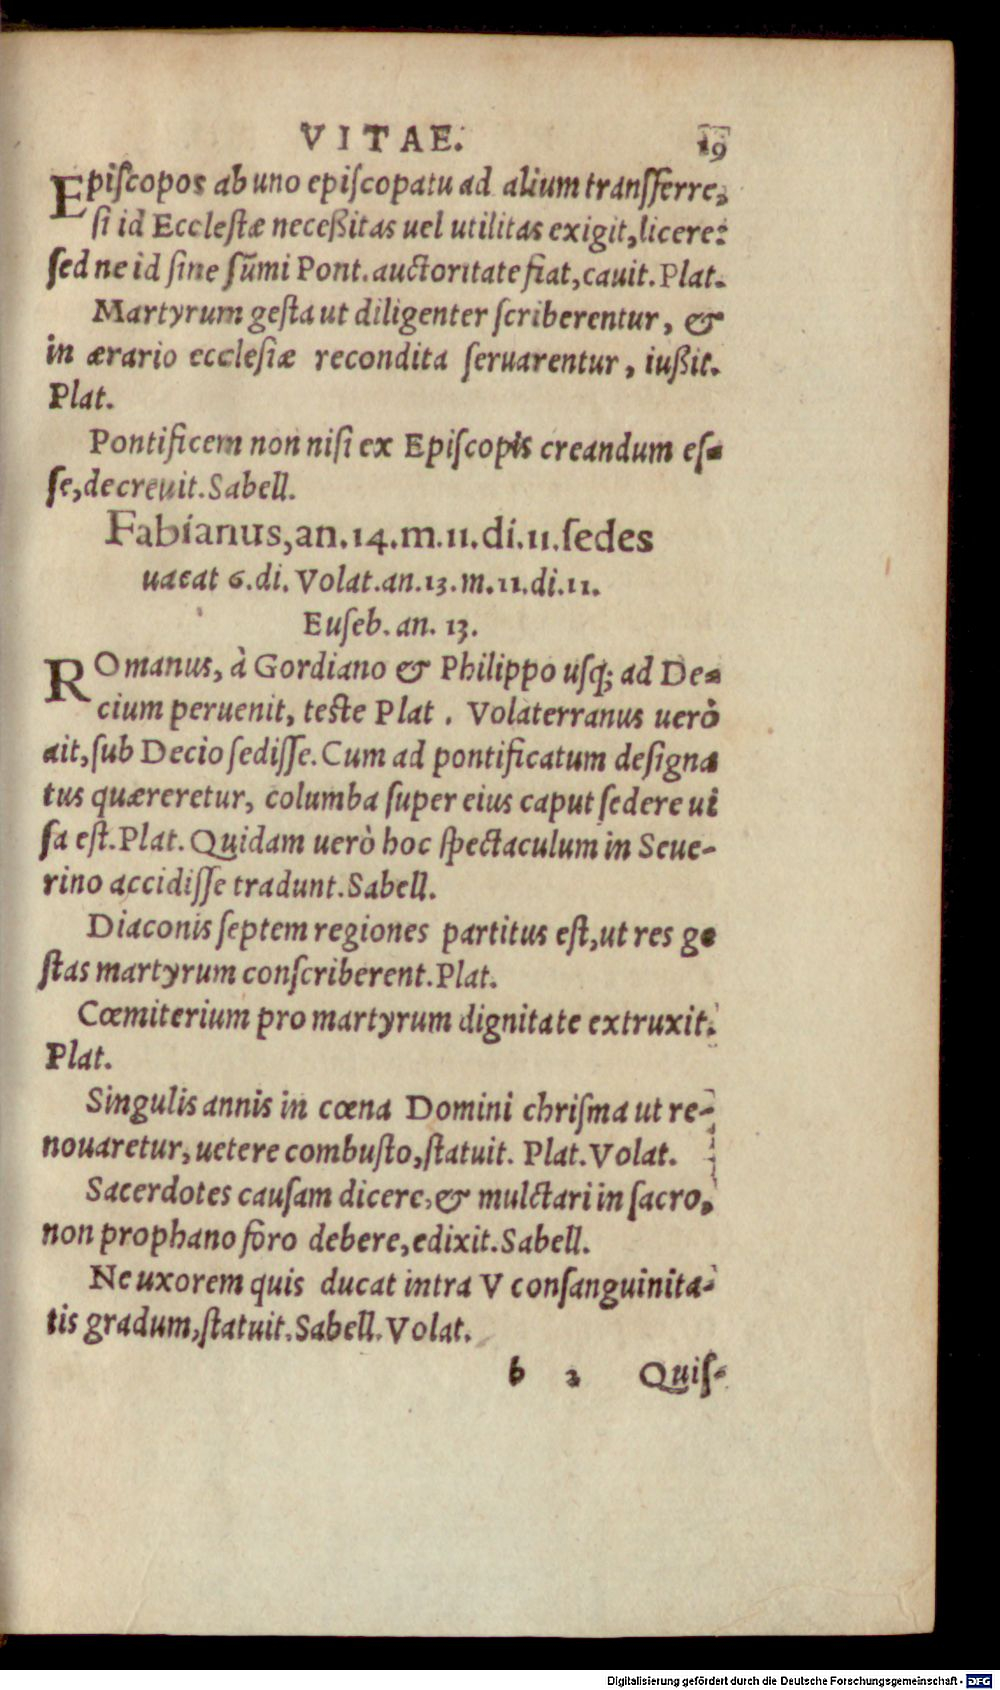 VITAE. 19
Episcopos ab uno episcopatu ad alium transsferre,
si id Ecclestæ neceßitas uel utilitas exigit, licere:
sed ne id sine sūmi Pont. auctoritate fiat, cauit. Plat.
Martyrum gesta ut diligenter scriberentur, &
in ærario ecclesiæ recondita seruarentur, iußit.
Plat.
Pontificem non nisi ex Episcopis creandum es-
se, decreuit. Sabell.
Fabianus, an. 14. m. 11. di. 11. sedes
uacat 6. di. Volat. an. 13. m. 11. di. 11.
Euseb. an. 13.
ROmanus, à Gordiano & Philippo usq; ad De-
cium peruenit, teste Plat. Volaterranus uerò
ait, sub Decio sedisse. Cum ad pontificatum designa
tus quæreretur, columba super eius caput sedere ui
sa est. Plat. Quidam uerò hoc spectaculum in Seue-
rino accidisse tradunt. Sabell.
Diaconis septem regiones partitus est, ut res ge
stas martyrum conscriberent. Plat.
Cœmiterium pro martyrum dignitate extruxit.
Plat.
Singulis annis in cœna Domini chrisma ut re-
nouaretur, uetere combusto, statuit. Plat. Volat.
Sacerdotes causam dicere, & mulctari in sacro,
non prophano foro debere, edixit. Sabell.
Ne uxorem quis ducat intra V consanguinita-
tis gradum, statuit. Sabell. Volat.
b 3 Quis-
Digitalisierung gefördert durch die Deutsche Forschungsgemeinschaft - DFG